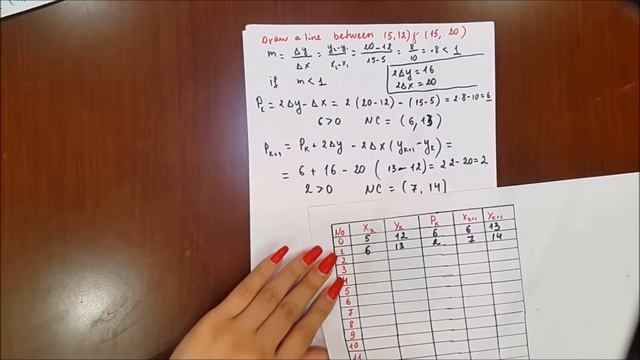 Draw a line between (5,12) & (15, 20)
m = Δy/Δx = y₂-y₁/x₂-x₁ = 20-12/15-5 = 8/10 = .8 < 1
if m < 1
2Δy = 16
2Δx = 20
Pₖ = 2Δy - Δx = 2 (20-12) - (15-5) = 2·8-10 = 6
6>0 NC = (6, 13)
Pₖ₊₁ = Pₖ + 2Δy - 2Δx (yₖ₊₁ - yₖ) =
= 6 + 16 - 20 (13-12) = 22-20 = 2
2>0 NC = (7, 14)
No Xₖ Yₖ Pₖ Xₖ₊₁ Yₖ₊₁
0 5 12 6 6 13
1 6 13 2 7 14
2
3
4
5
6
7
8
9
10
11